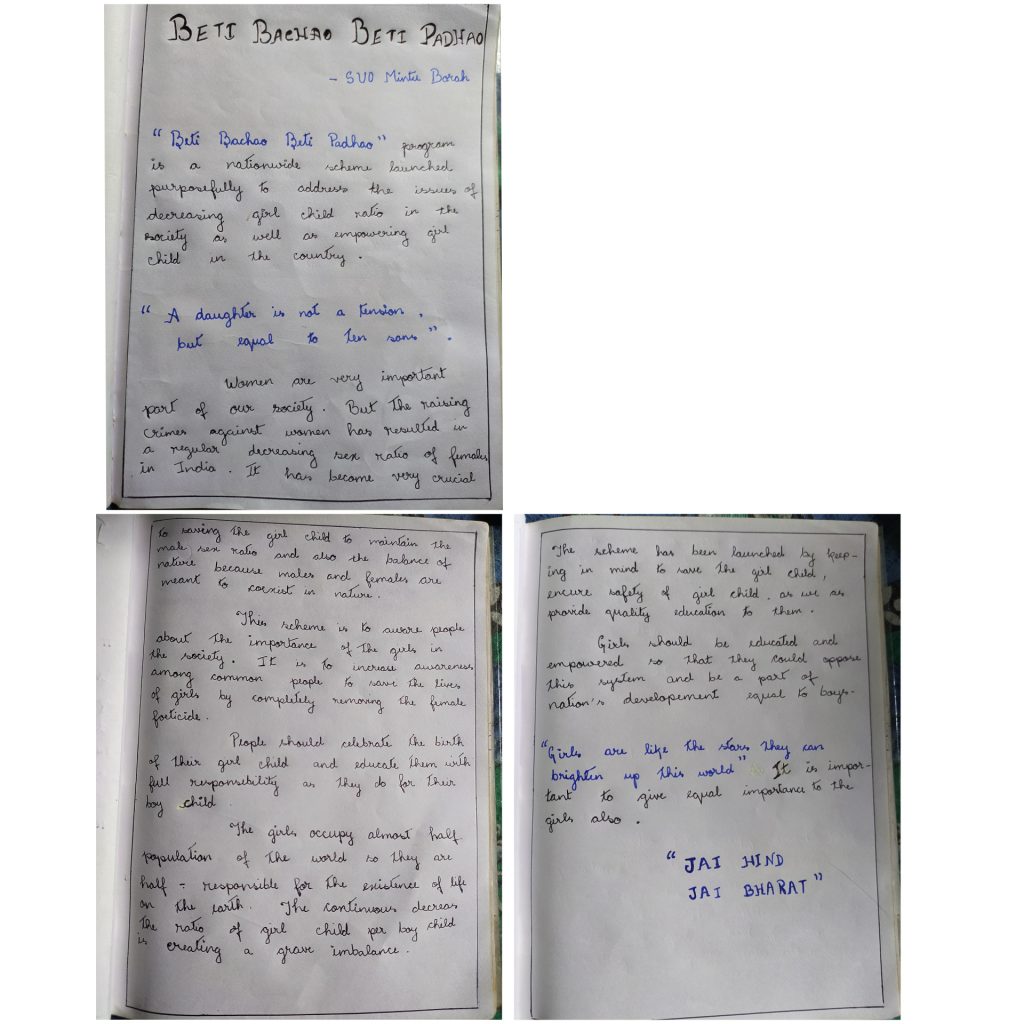 BETI BACHAO BETI PADHAO
- SUO Mintu Borah
"Beti Bachao Beti Padhao" program
is a nationwide scheme launched
purposefully to address the issues of
decreasing girl child ratio in the
society as well as empowering girl
child in the country.
"A daughter is not a tension,
but equal to ten sons".
Women are very important
part of our society. But the raising
crimes against women has resulted in
a regular decreasing sex ratio of females
in India. It has become very crucial
to saving the girl child to maintain the
male sex ratio and also the balance of
nature because males and females are
meant to coexist in nature.
This scheme is to aware people
about the importance of the girls in
the society. It is to increase awareness
among common people to save the lives
of girls by completely removing the female
foeticide.
People should celebrate the birth
of their girl child and educate them with
full responsibility as they do for their
boy child
The girls occupy almost half
population of the world so they are
half - responsible for the existence of life
on the earth. The continuous decreas
the ratio of girl child per boy child
is creating a grave imbalance.
The scheme has been launched by keep-
ing in mind to save the girl child,
encure safety of girl child, as we as
provide quality education to them.
Girls should be educated and
empowered so that they could oppose
this system and be a part of
nation's developement equal to boys.
"Girls are like the stars they can
brighten up this world" It is impor-
tant to give equal importance to the
girls also.
"JAI HIND
JAI BHARAT"